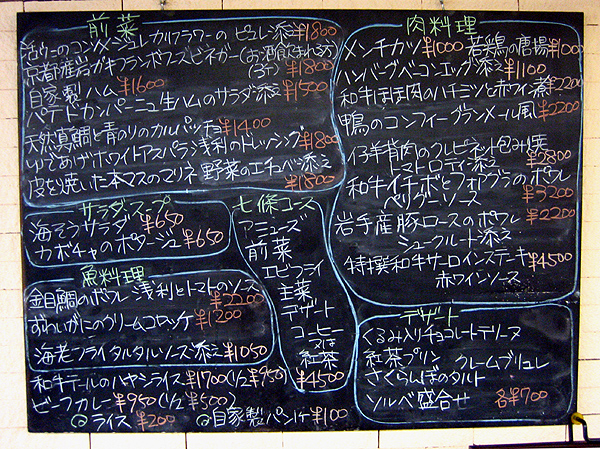 前菜
活ウニのコンソメジュレ カリフラワーのピュレ添え ¥1800
京都産岩ガキ フランボワーズビネガー (お酒飲まれる方)
(3ヶ) ¥1800
自家製ハム ¥1600
パテドカンパーニュ 生ハムのサラダ添え ¥1500
天然真鯛と青のりのカルパッチョ ¥1400
ゆであげホワイトアスパラ 浅利のドレッシング ¥1800
皮を焼いた本マスのマリネ 野菜のエチュベ添え
¥1800
サラダ スープ
海そうサラダ ¥650
カボチャのポタージュ ¥650
魚料理
金目鯛のポワレ 浅利とトマトのソース
¥2200
ずわいがにのクリームコロッケ ¥1200
海老フライ タルタルソース添え ¥1050
和牛テールのハヤシライス ¥1700 (1/2 ¥950)
ビーフカレー ¥950 (1/2 ¥500)
ライス ¥200 自家製パン 1ケ ¥100
七條コース
アミューズ
前菜
エビフライ
主菜
デザート
コーヒー
又は
紅茶
¥4500
肉料理
メンチカツ ¥1000 若鶏の唐揚 ¥1000
ハンバーグ ベーコンエッグ添え ¥1100
和牛ほほ肉のハチミツと赤ワイン煮 ¥2200
鴨のコンフィ グランメール風 ¥2200
仔羊背肉のクレピネット包み焼
トマトロティ添え ¥2800
和牛イチボとフォアグラのポワレ
ペリグーソース ¥3200
岩手産豚ロースのポワレ ¥2200
シュークルート添え
特撰和牛サーロインステーキ ¥4500
赤ワインソース
デザート
くるみ入りチョコレートテリーヌ
紅茶プリン クレームブリュレ
さくらんぼのタルト
ソルベ盛合せ 各¥700